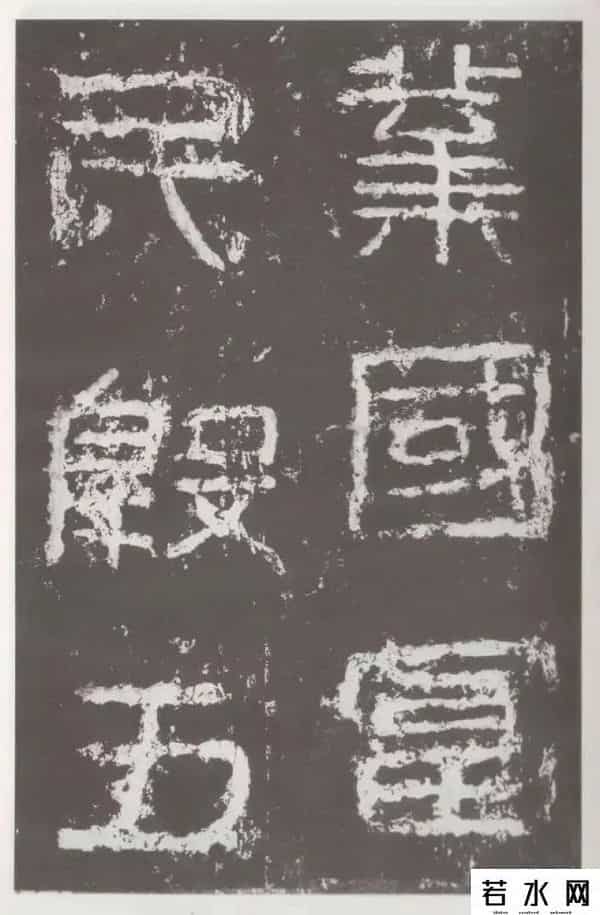 業國富
民殷五
若水网